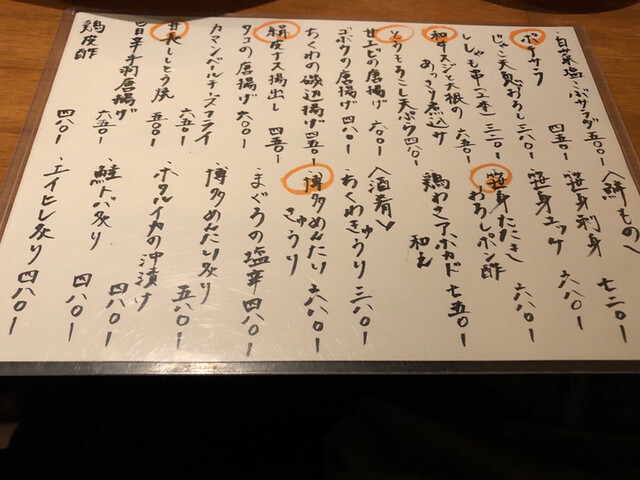 白菜塩コンブサラダ 五〇〇ー
ポテサラ 四五〇ー
じゃこ天おろし 三八〇ー
ししゃも串(二本) 三二〇ー
和牛スジと大根の
あっさり煮込み 六五〇ー
とうもろこし天ぷら 四八〇ー
甘エビの唐揚げ 六〇〇ー
ゴボウの唐揚げ 四八〇ー
ちくわの磯辺揚げ 四五〇ー
絹皮ナス揚出し 四五〇ー
タコの唐揚げ 六〇〇ー
カマンベールチーズフライ 六五〇ー
甘長しとう焼 五〇〇ー
旨辛手羽唐揚げ 六五〇ー
鶏皮酢 四八〇ー
〈鮮もの〉
笹身刺身 七二〇ー
笹身ユッケ 六八〇ー
笹身たたき
おろしポン酢 六八〇ー
鶏わさアボカド和え 七五〇ー
〈酒肴〉
ちくわきゅうり 三八〇ー
博多めんたい
きゅうり 六八〇ー
まぐろの塩辛 四八〇ー
博多めんたい炙り 五八〇ー
ホタルイカの沖漬け 四八〇ー
鮭トバ炙り 四八〇ー
エイヒレ炙り 四八〇ー